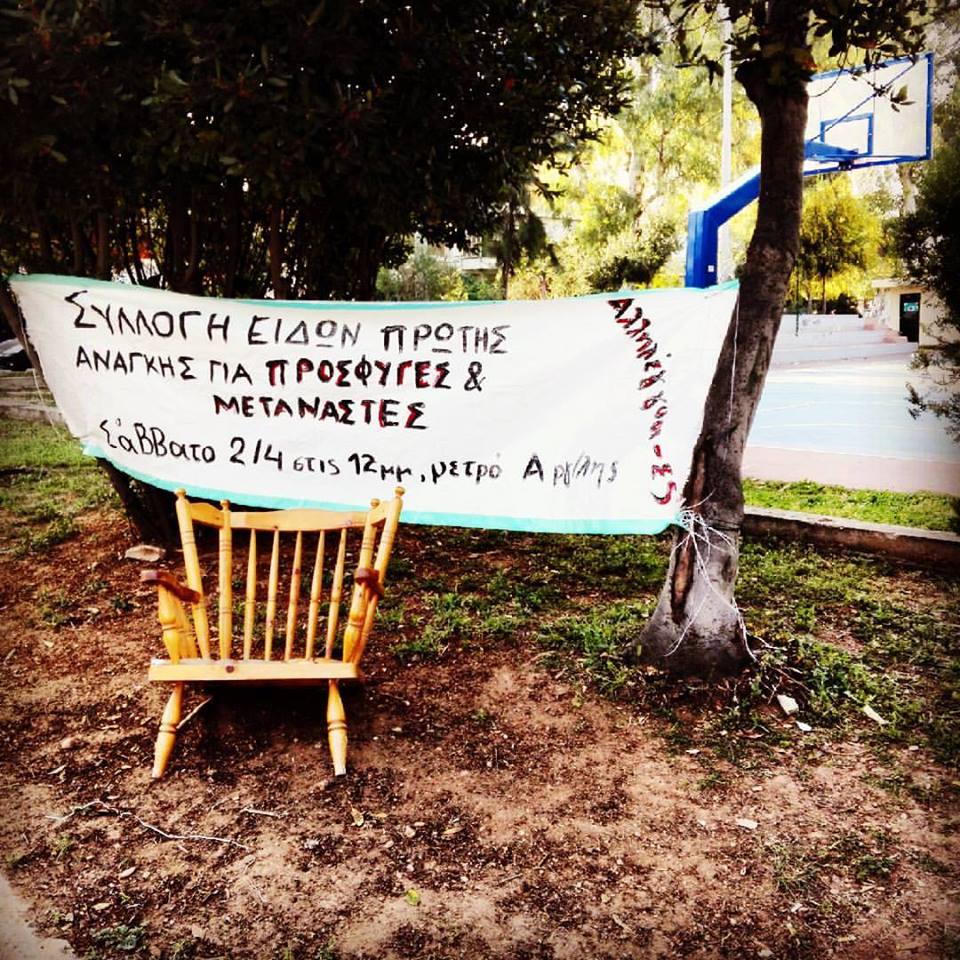 ΣΥΛΛΟΓΗ ΕΙΔΩΝ ΠΡΩΤΗΣ
ΑΝΑΓΚΗΣ ΓΙΑ ΠΡΟΣΦΥΓΕΣ &
ΜΕΤΑΝΑΣΤΕΣ
Σάββατο 2/4 στις 12μμ, μετρό